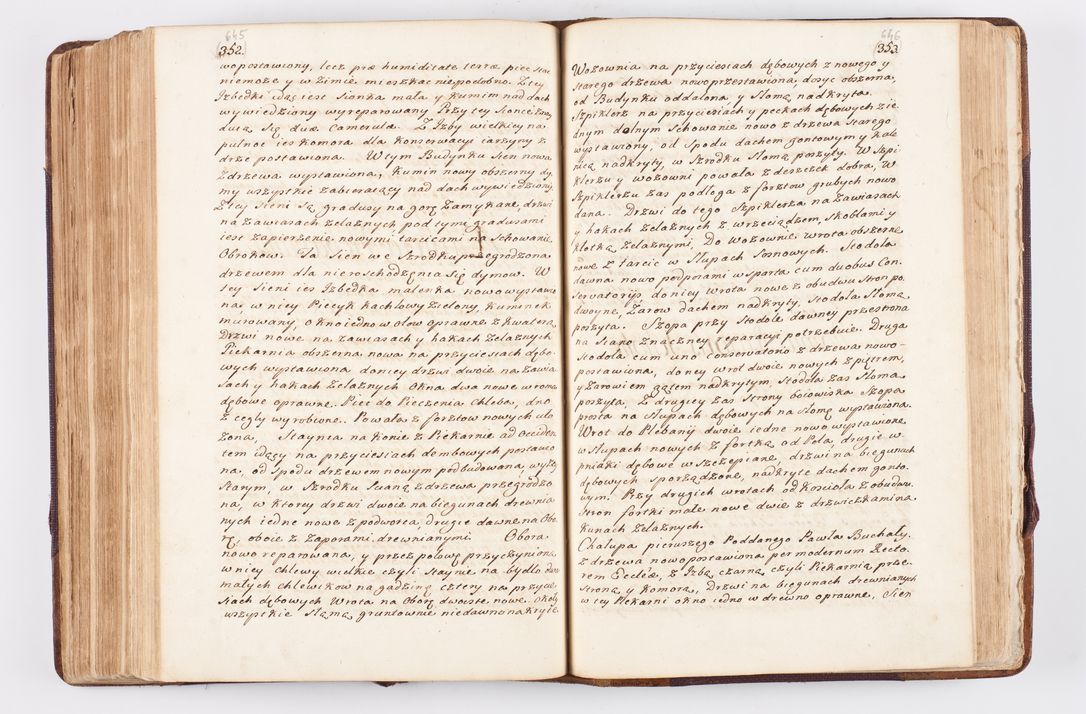 645
352.
wo postawiony, lecz præ humiditate terræ piec stac
niemoże y w Zimie mieszkac niepodobno. Z tey
Izbedki idąc iest Sionka mała y kumin nad dach
wywiedziony wyreparowany. Przy tey Sionce
duią Się duæ Camerulæ. Z Izby wielkiey na
pułnoc ies Komora dla konserwacyi iarzyny z
drze postawiona. W tym Budynku Sien nowa
z drzewa wystawiona, kumin nowy obszerny dy
my wszystkie zabieraiący nad dach wywiedziony
z tey Sieni Są gradusy na gorę zamykane, drzwi
na zawiasach żelaznych pod tymi gradusami
iest zapierzenie nowymi tarcicami na Schowanie
Obrokow. Ta Sien we Szrodku przegrodzona
drzewem dla nieroschodzęnia Się dymow. W
tey Sieni ies Izbedka malenka nowo wystawio
na, w niey Piecyk kachlowy zielony, kuminek
murowany, okno iedno w ołow oprawne z kwaterą
Drzwi nowe na zawiasach y hakach żelaznych
Piekarnia obszerna nowa na przyciesiach dębo-
wych wystawiona do niey drzwi dwoie na zawia
sach y hakach żelaznych Okna dwa nowe w ramy
dębowe oprawne. Piec do Pieczenia Chleba, dno
z cegły wyrobione. Powała z forsztow nowych uło
zona, Staynia na konie z Piekarnie ad Occiden
tem idący na przyciesiach dembowych postawio
na, od Spodu drzewem nowym podbudowana, wyżey
Starym, w Szrodku Scianą z drzewa przegrodzo
na, w ktorey drzwi dwoie na biegunach drewnia
nych iedne nowe z podworca, drugie dawne na Obo
rę, oboie z zaporami drewnianymi Obora
nowo reparowana, y przez połowę przyczyniona
w niey Chlewy wielkie czyli Staynie na bydło dwa
małych chlewikow na gadzinę cztery na przycie
siach dębowych Wrota na Oborę dwoiste nowe. Około
wszystkie Słomą gruntownie niedawno nakryte
646
353
Wozownia na przyciesiach dębowych z nowego y
starego drzewa nowo przestawiona, dosyc obszerna,
od Budynku oddalona y Słomą nadkryta.
Szpiklerz na przyciesiach y peckach dębowych z ie
dnym dolnym Schowanie nowo z drzewa Starego
wystawiony, od Spodu dachem gontowym y kale
nicą nadkryty, w Szrodku Słomą poszyty. W Szpi
klerzu y wozowni powała z deszczek dobra, W
Szpiklerzu zas podłoga z forsztow grubych nowo
dana. Drzwi do tego Szpiklerza na zawiasach
y hakach żelaznych z wrzeciądzem, Skoblami y
kłotką żelaznymi, Do Wozowni wrota obszerne
nowe z tarcic w Słupach Sosnowych. Stodoła
dawna nowo podporami wsparta cum duobus Con
servatorys, do niey Wrota nowe z obudwu Stron po
dwoyne, Zarow dachem nadkryty, Stodoła Słomą
poszyta. Szopa przy Stodole dawney przestrona
na Siano znaczney reparacyi potrzebuie. Druga
Stodoła cum uno conservatorio z drzewa nowo-
postawiona, do niey wrot dwoie nowych z pętrem,
y Zarowiem gątem nadkrytym, Stodoła zas Słomą
poszyta, z drugiey zas Strony boiowiska Szopa
prosta na Słupach dębowych na Słomę wystawiona.
Wrot do Plebanij dwoie iedne nowo wystawione
w Słupach nowych z fortką od Pola, drugie w
pniaki dębowe wszczepiane, drzwi na biegunach
dębowych Sporządzone, nadkryte dachem gonto-
wym. Przy drugich wrotach od Kosciola z obudwu
Stron fortki małe nowe dwie z drzwiczkami na
kunach żelaznych.
Chałupa pierwszego Poddanego Pawła Buchały.
z drzewa nowo postawiona per modernum Recto-
rem Ecclæ, z Izbą czarną czyli Piekarnią prze-
stroną y Komorą, Drzwi na biegunach drewnianych
w tey Piekarni okno iedno w drewno oprawne, Sien